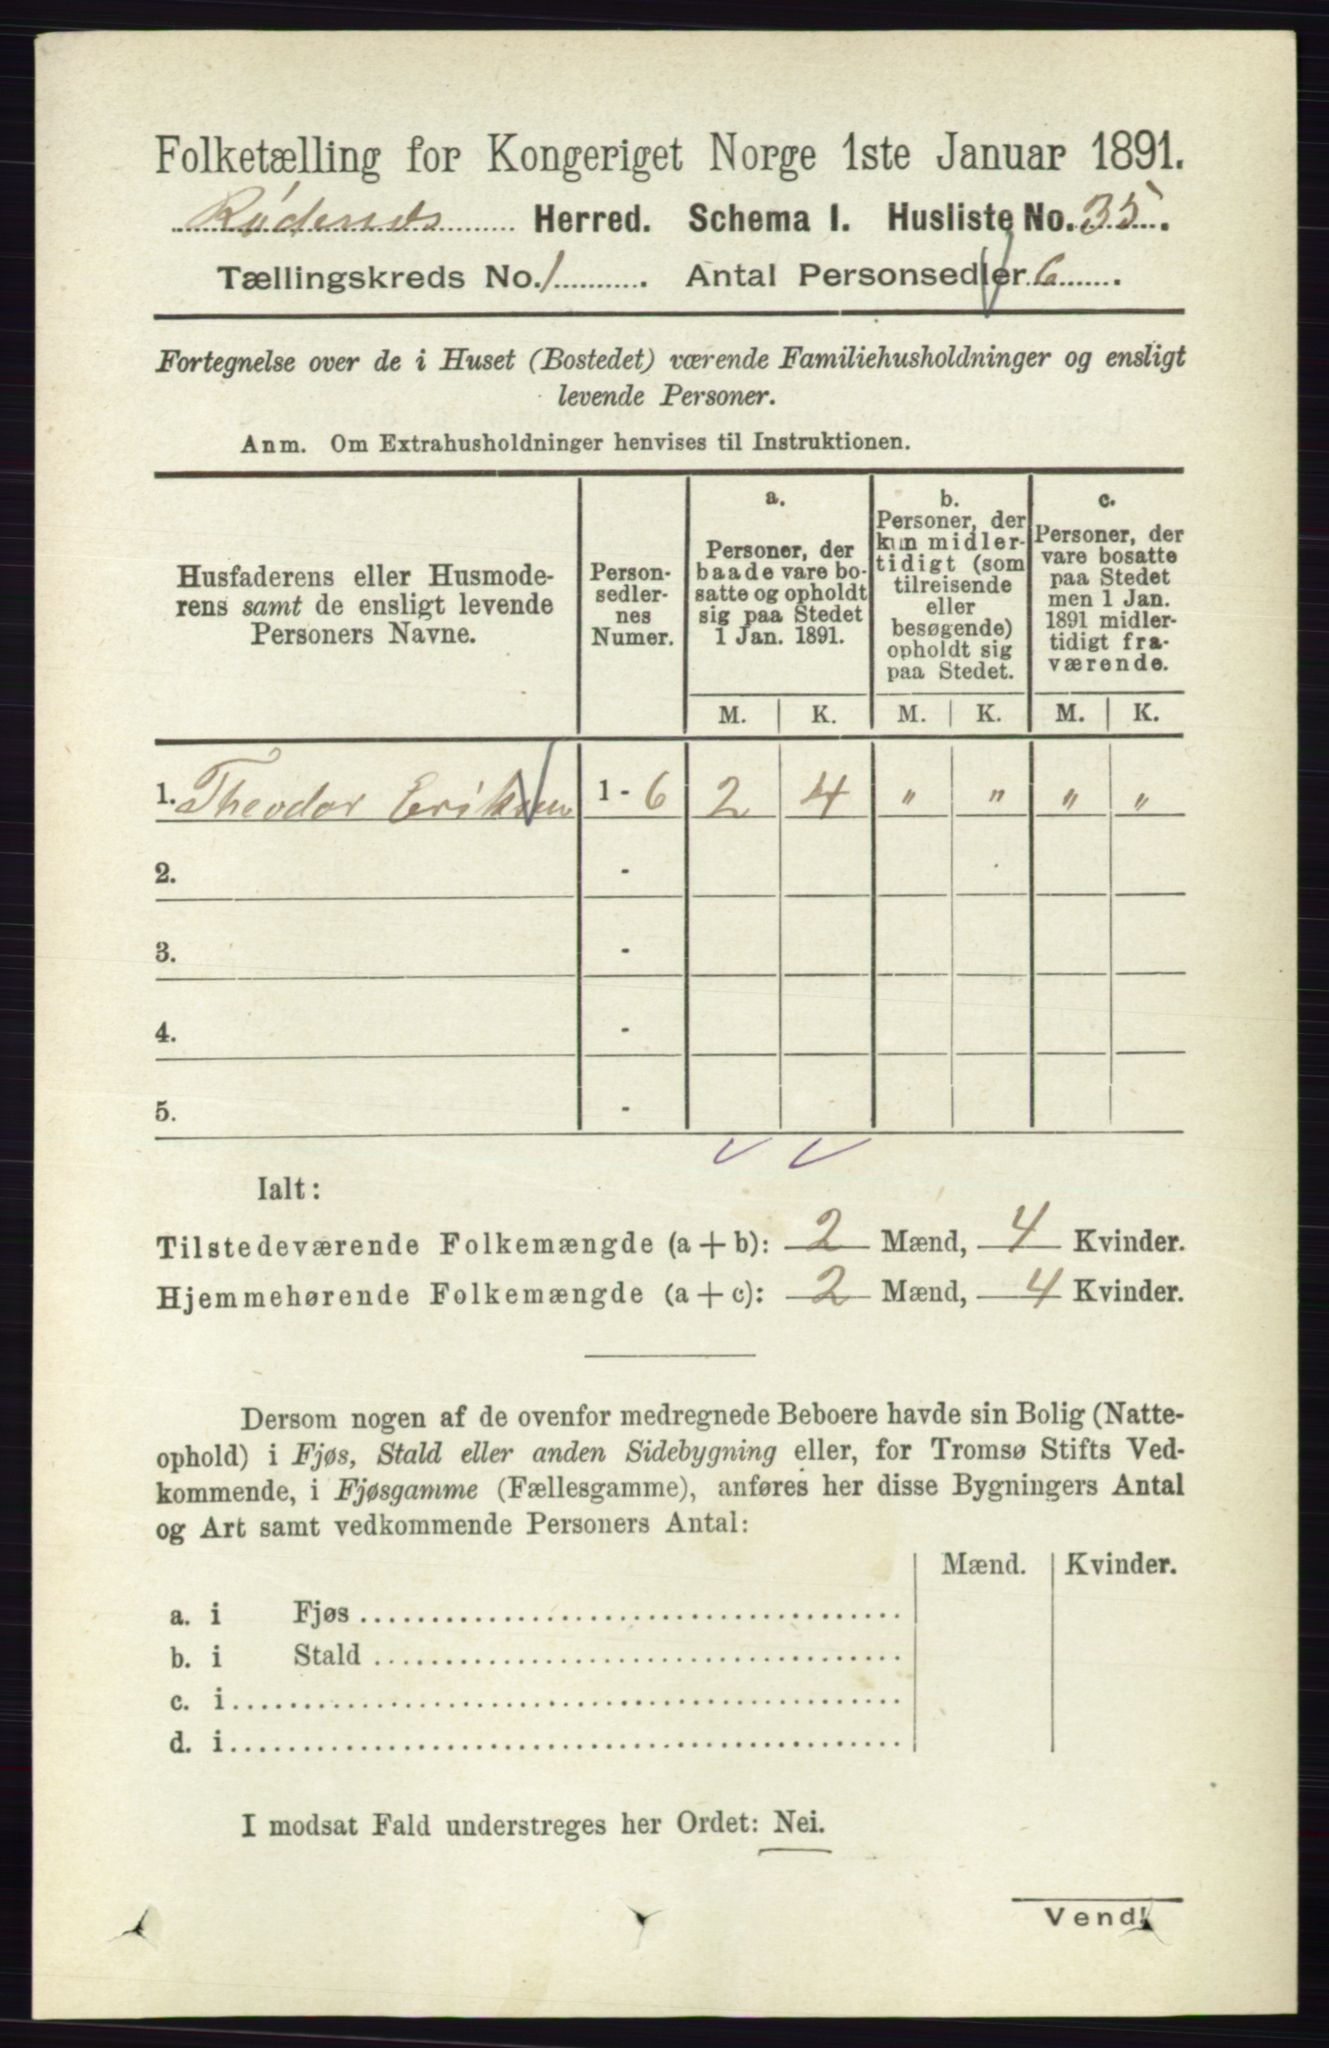 Folketælling for Kongeriget Norge 1ste Januar 1891.
Rødenæs Herred. Schema I. Husliste No. 35.
Tællingskreds No. 1. Antal Personsedler 6.
Fortegnelse over de i Huset (Bostedet) værende Familiehusholdninger og ensligt
levende Personer.
Anm. Om Extrahusholdninger henvises til Instruktionen.
Husfaderens eller Husmode-
rens samt de ensligt levende
Personers Navne.
Person-
sedler-
nes
Numer.
a.
Personer, der
baade vare bo-
satte og opholdt
sig paa Stedet
1 Jan. 1891.
b.
Personer, der
kun midler-
tidigt (som
tilreisende
eller
besøgende)
opholdt sig
paa Stedet.
c.
Personer, der
vare bosatte
paa Stedet
men 1 Jan.
1891 midler-
tidigt fra-
værende.
M. K. M. K. M. K.
1. Theodor Eriksen 1 - 6 2 4 " " " "
2. -
3. -
4. -
5. -
Ialt:
Tilstedeværende Folkemængde (a + b): 2 Mænd, 4 Kvinder.
Hjemmehørende Folkemængde (a + c): 2 Mænd, 4 Kvinder.
Dersom nogen af de ovenfor medregnede Beboere havde sin Bolig (Natte-
ophold) i Fjøs, Stald eller anden Sidebygning eller, for Tromsø Stifts Ved-
kommende, i Fjøsgamme (Fællesgamme), anføres her disse Bygningers Antal
og Art samt vedkommende Personers Antal:
Mænd. Kvinder.
a. i Fjøs
b. i Stald
c. i
d. i
I modsat Fald understreges her Ordet: Nei.
Vend!